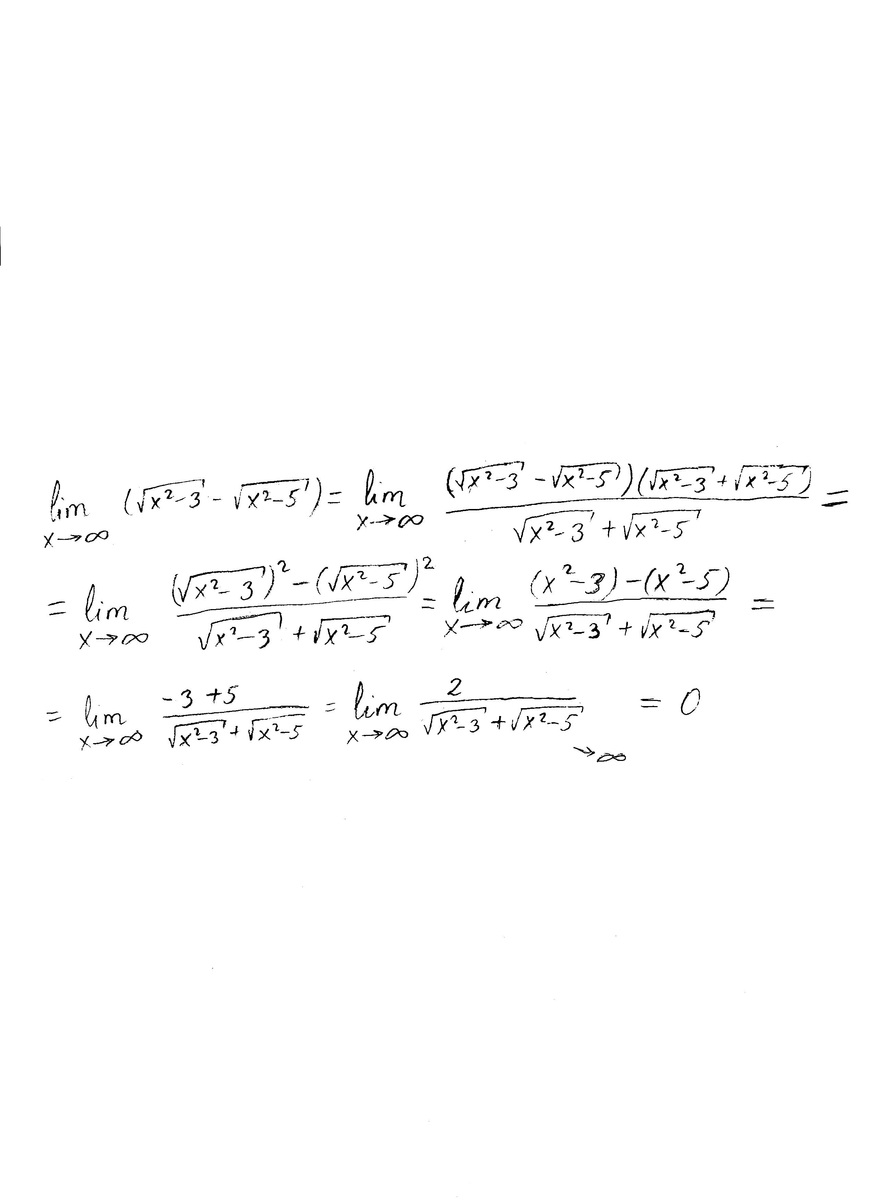 lim x→∞ (√(x²-3) - √(x²-5)) = lim x→∞ ((√(x²-3) - √(x²-5))(√(x²-3) + √(x²-5)))/(√(x²-3) + √(x²-5)) =
= lim x→∞ ((√(x²-3))² - (√(x²-5))²)/(√(x²-3) + √(x²-5)) = lim x→∞ ((x²-3)-(x²-5))/(√(x²-3) + √(x²-5)) =
= lim x→∞ (-3+5)/(√(x²-3) + √(x²-5)) = lim x→∞ 2/(√(x²-3) + √(x²-5)) →∞ = 0